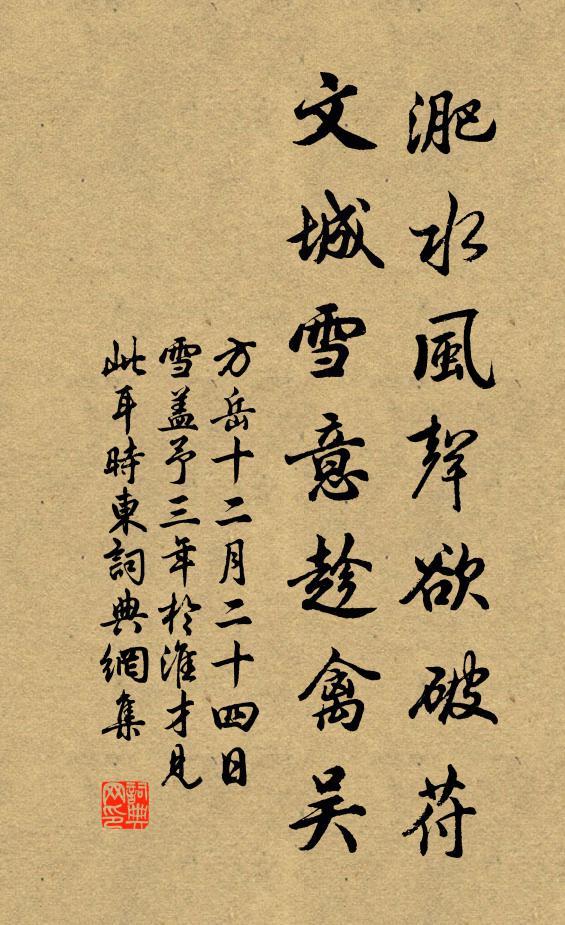 淝水風聲欲破苻
文城雪意趁禽吴
方岳十二月二十四日
雪蓋予三年於淮才見
此耳時東詞典網集
詞典网印